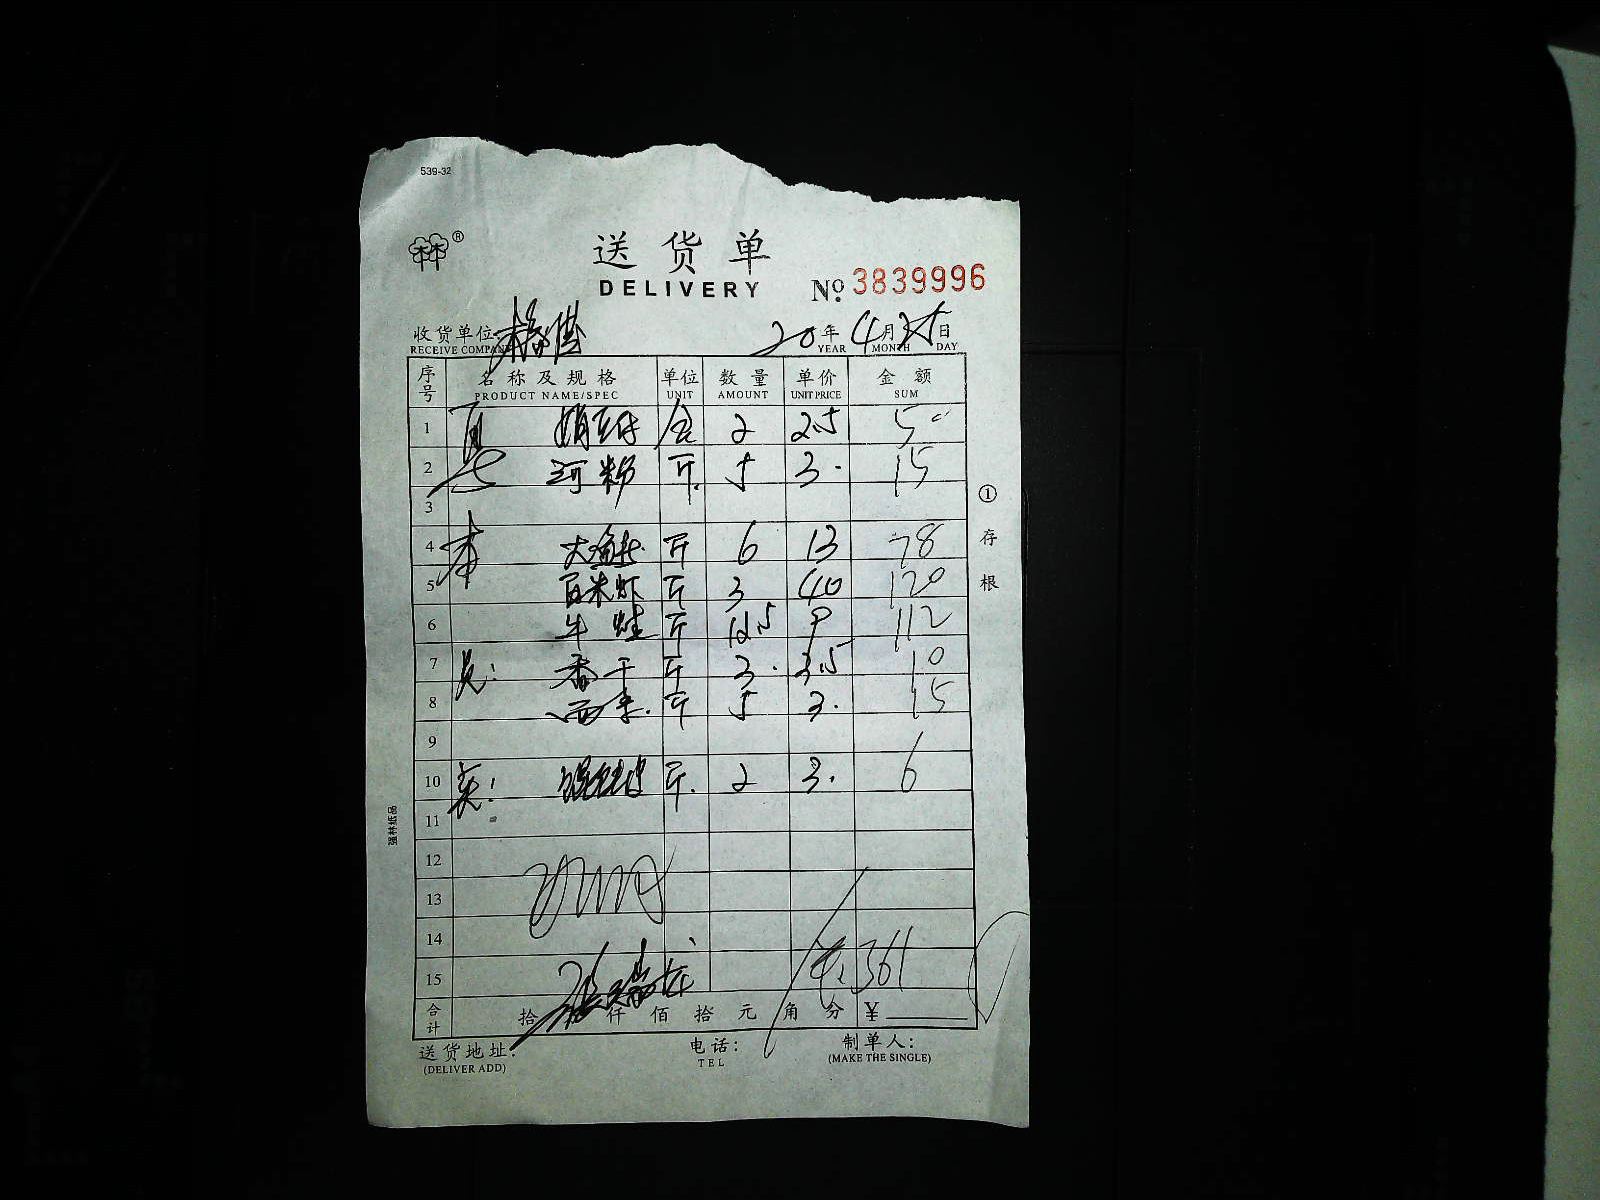 539-32
林®
送货单
DELIVERY № 3839996
收货单位 20年4月25日
RECEIVE COMPANY YEAR MONTH DAY
序号 名称及规格 单位 数量 单价 金额
PRODUCT NAME/SPEC UNIT AMOUNT UNIT PRICE SUM
1 2 2.5 5
2 河粉 斤. 5 3. 15
3
4 斤 6 13 78
5 白米虾 斤 3 40 120
6 牛蛙 斤 12.5 9 112
7 香干 斤 3. 3.5 10
8 斤 5 3. 15
9
10 斤. 2 3. 6
11
12
13
14
15 361
合计 拾 仟 佰 拾 元 角 分 ¥
送货地址: 电话: 制单人:
(DELIVER ADD) TEL (MAKE THE SINGLE)
① 存根
强林纸品